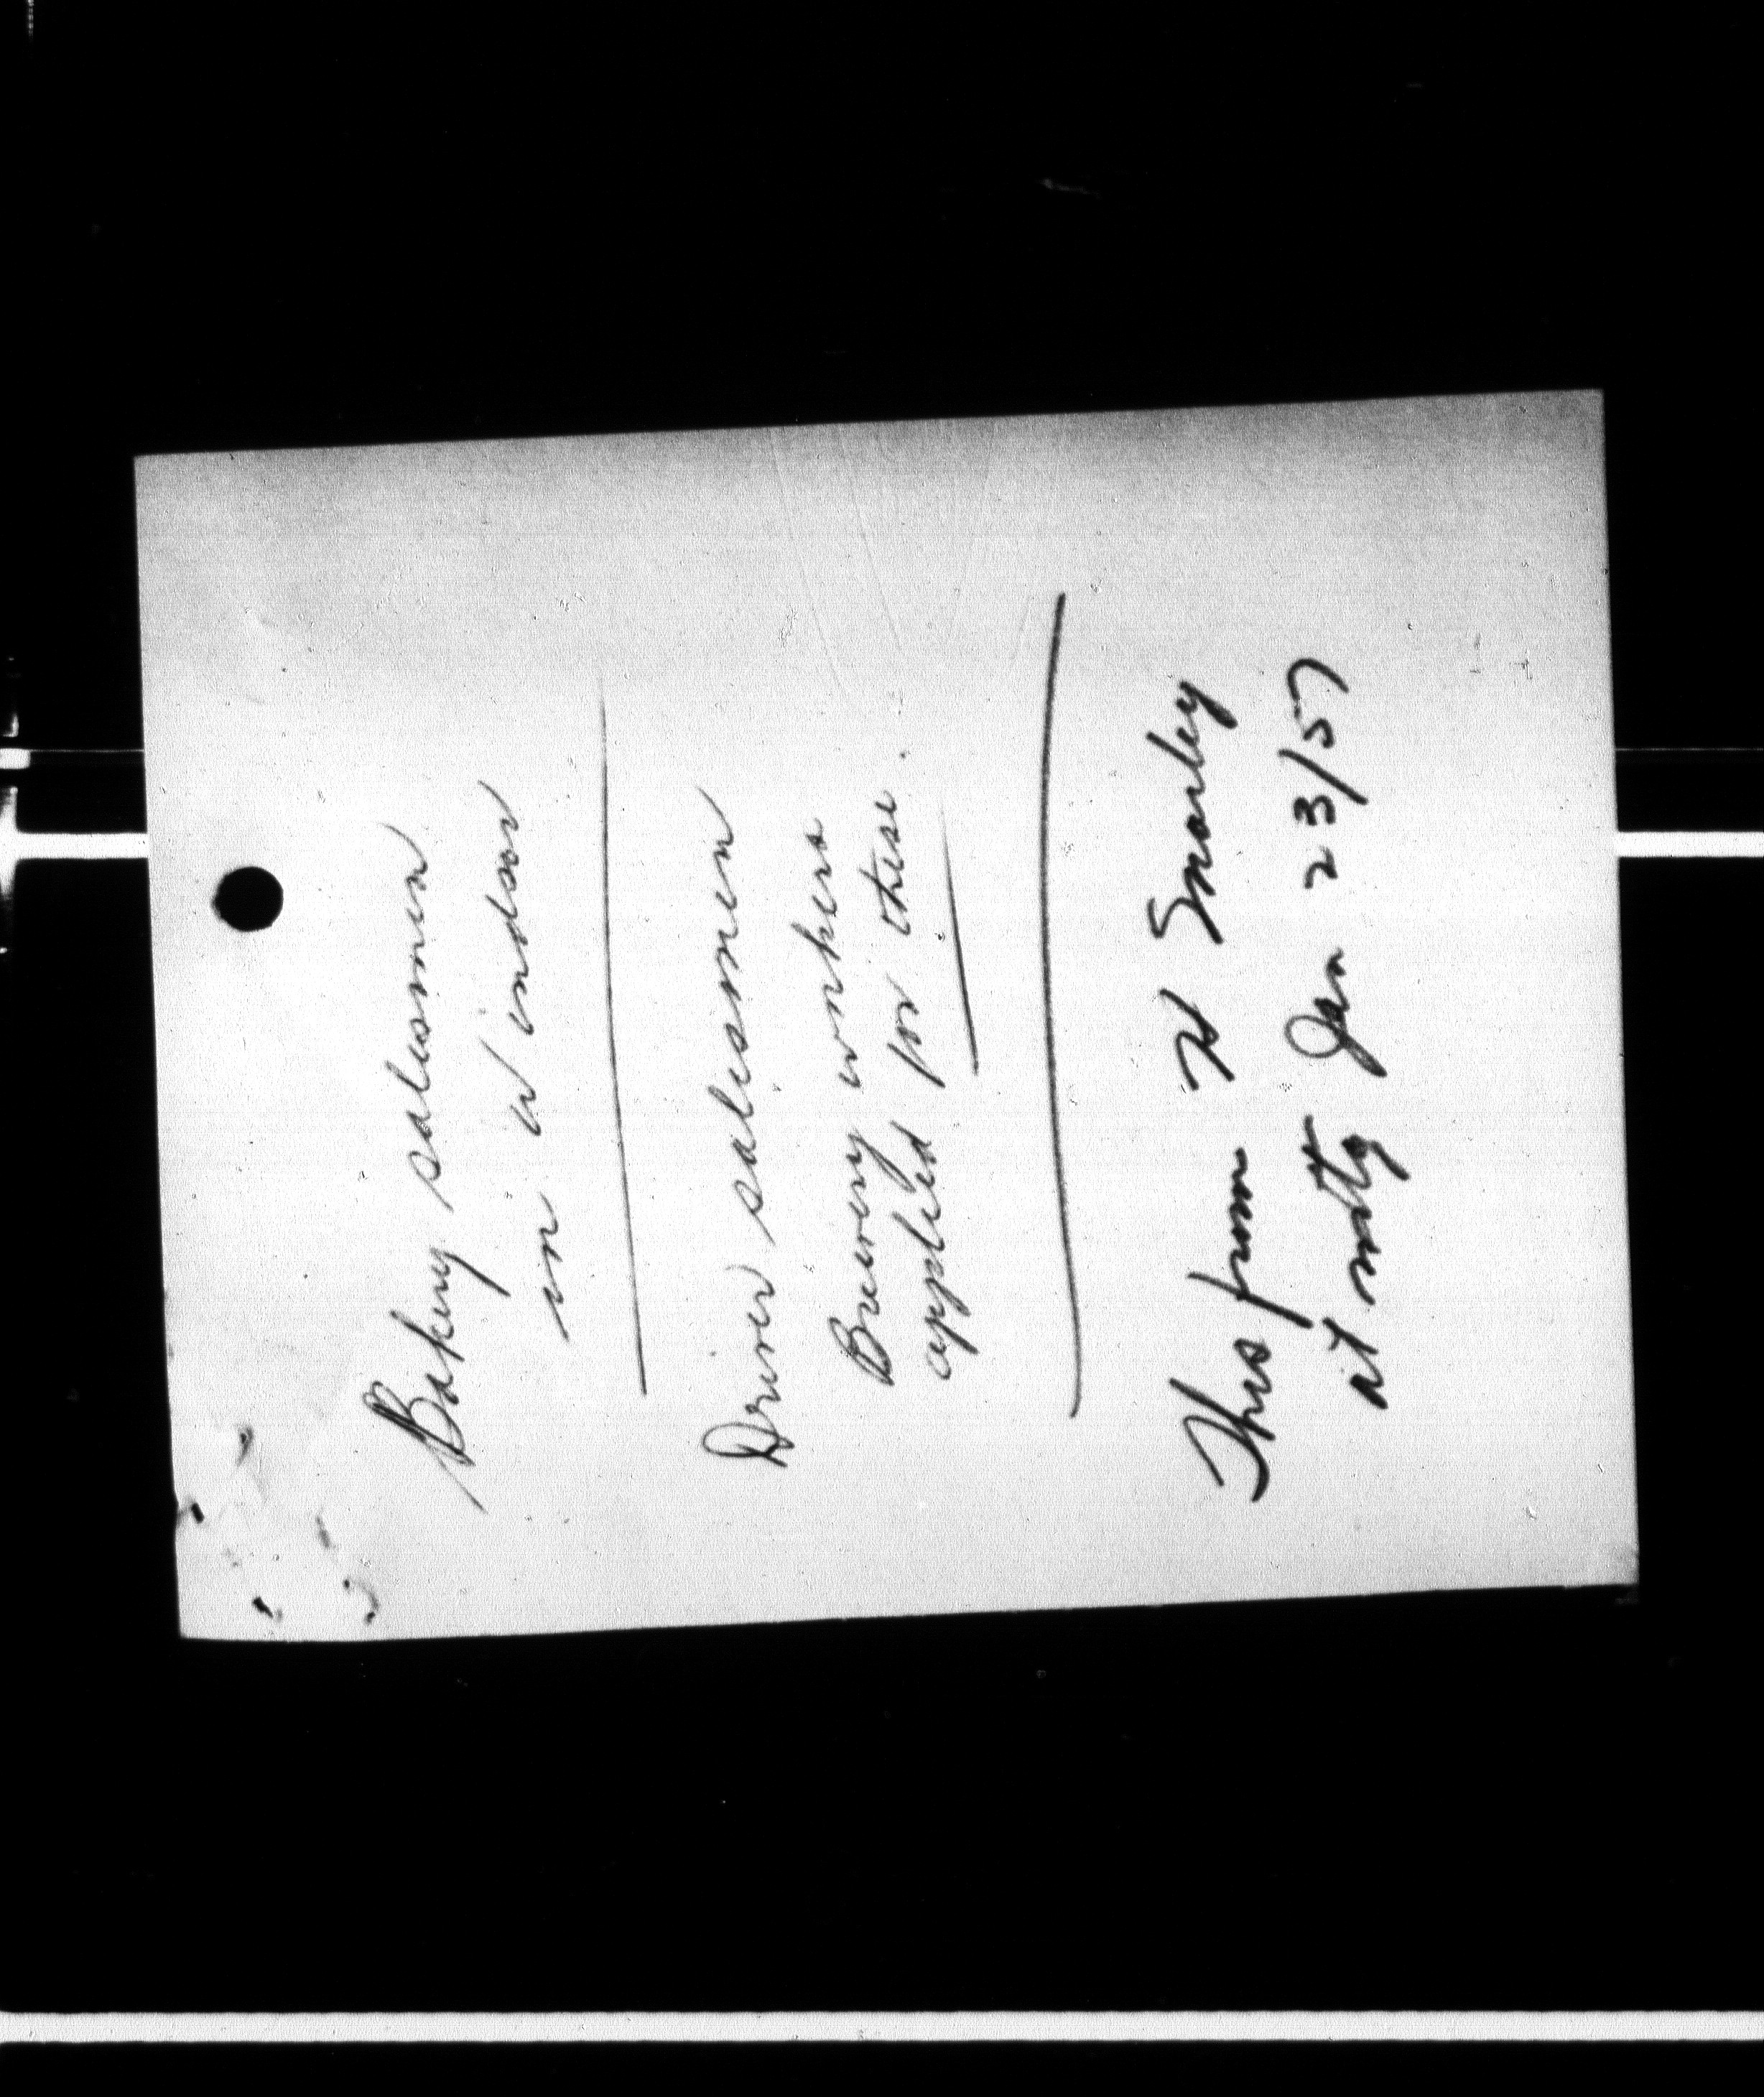 Bakery salesmen
in Windsor
Driver salesmen
Brewery workers
applied for these
This from H Smaley
at mtg Jan 23/57